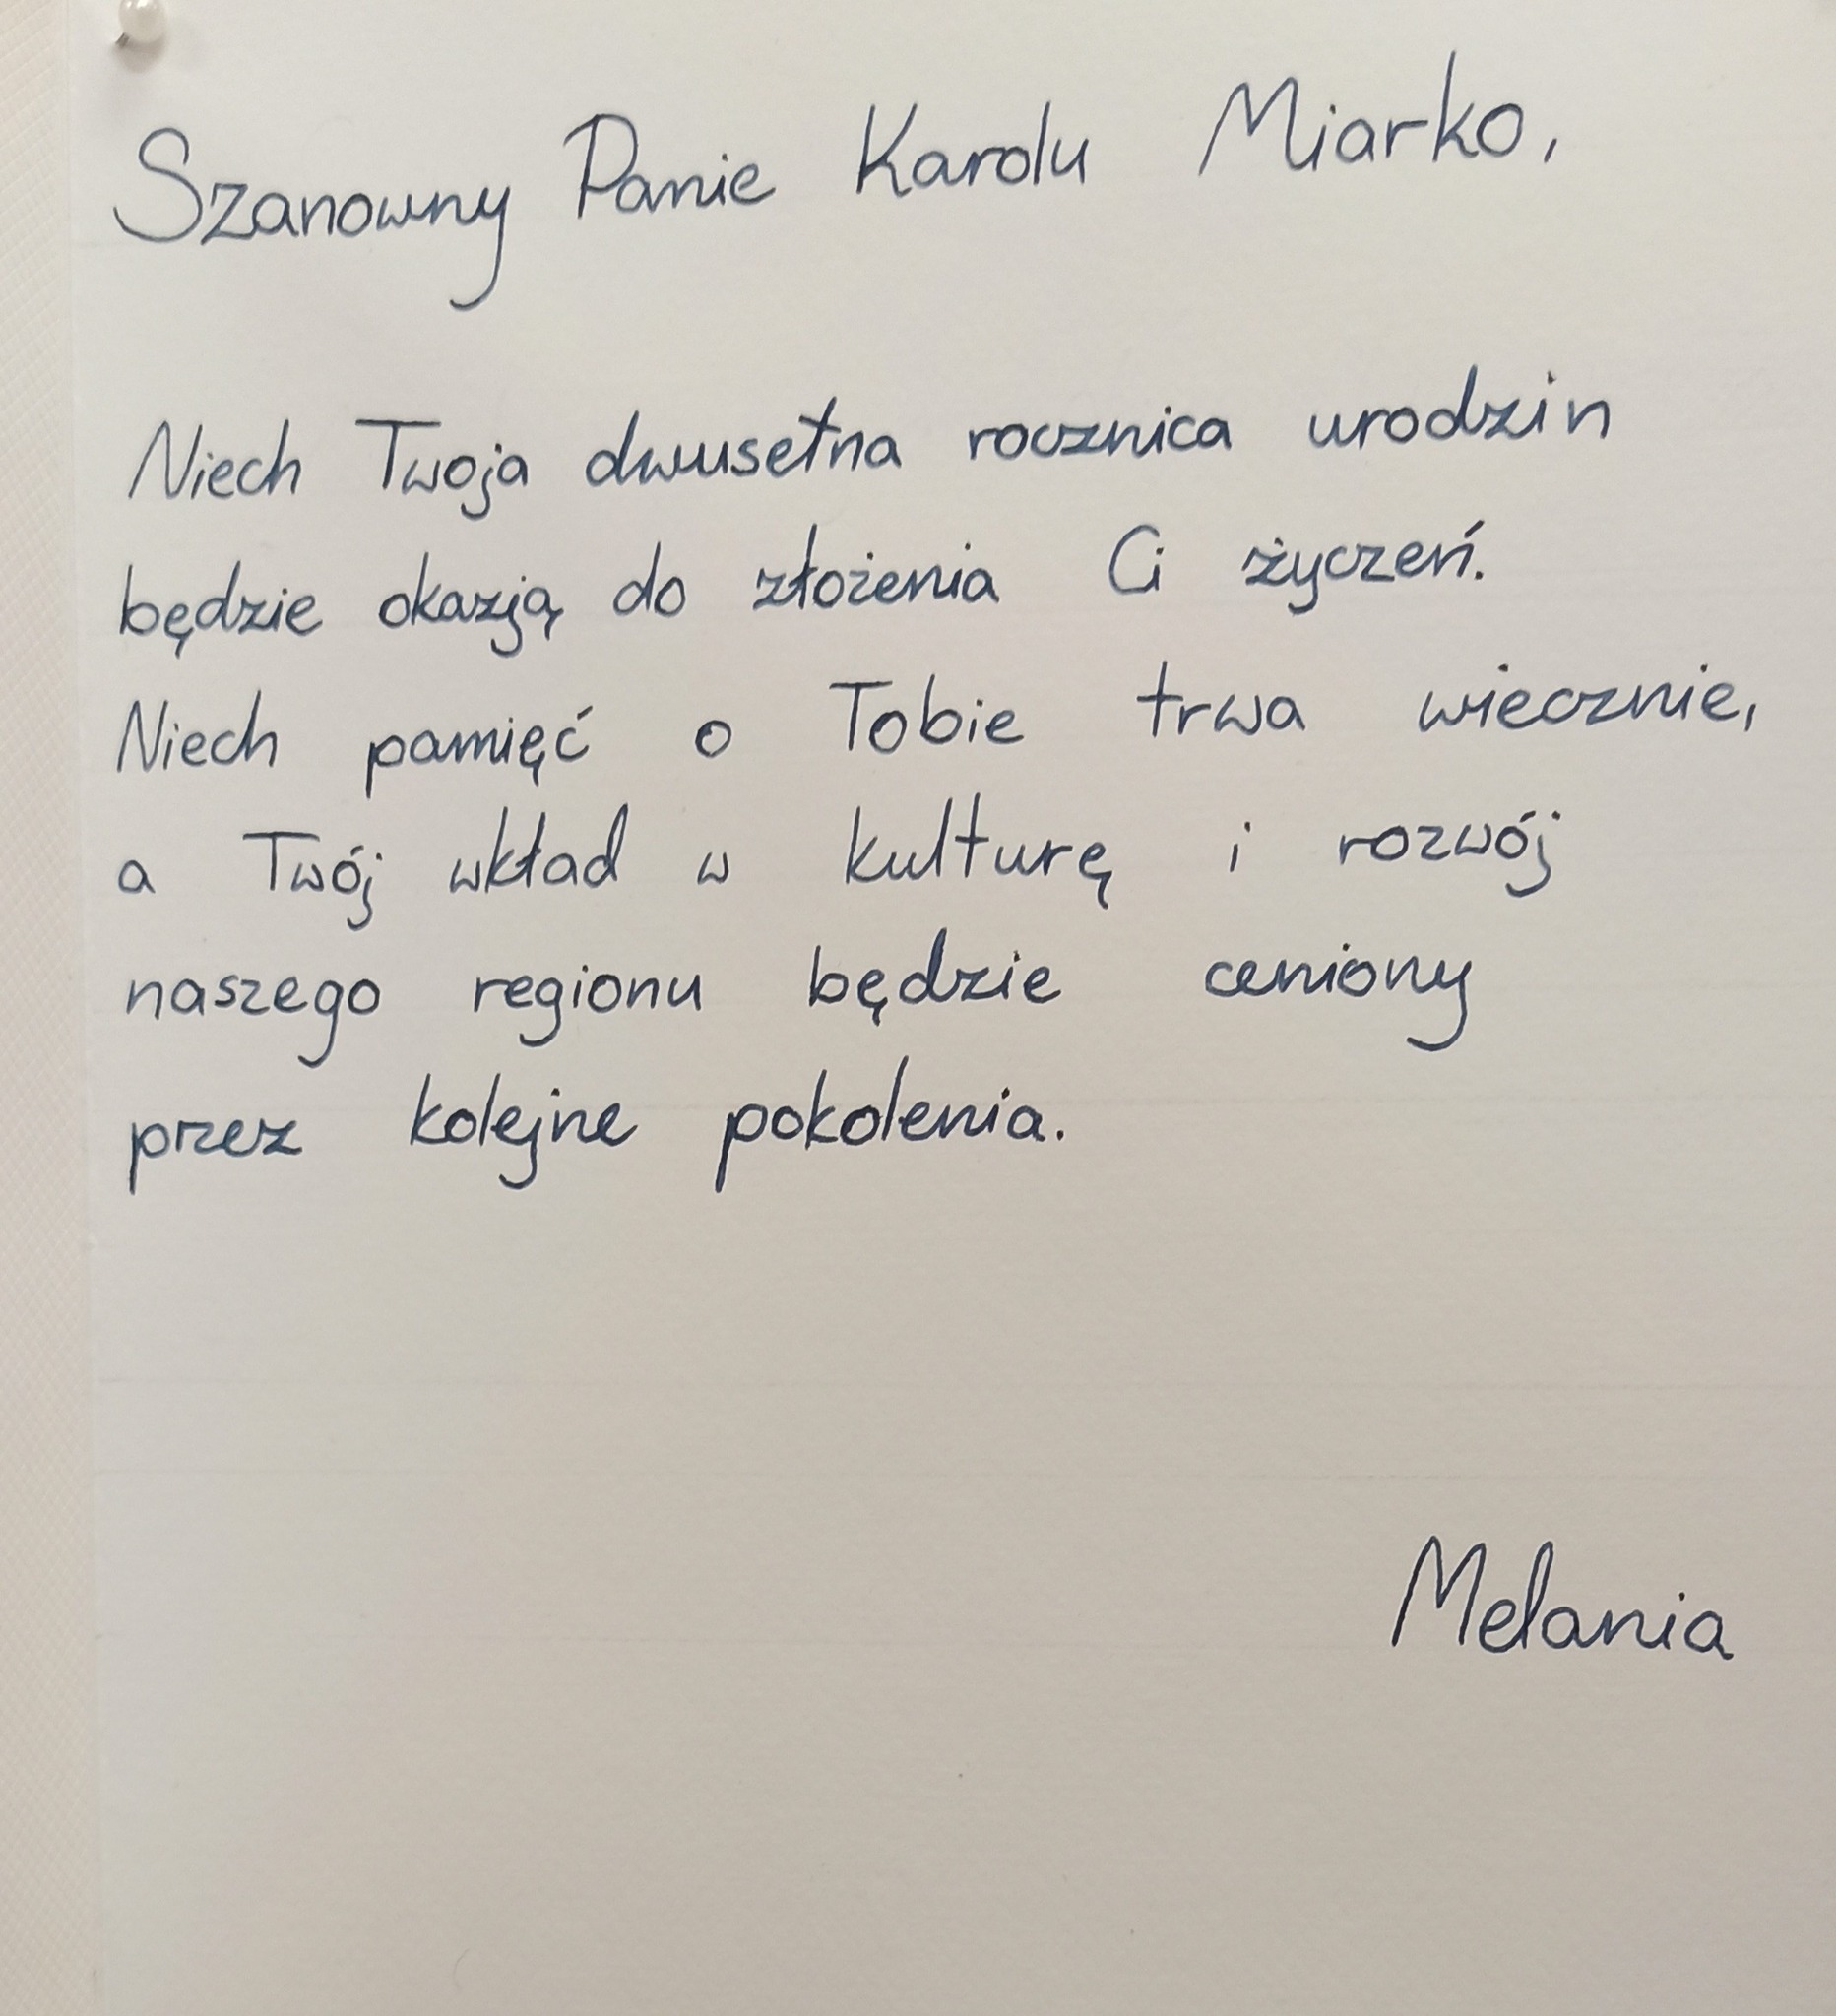 Szanowny Panie Karolu Miarko,
Niech Twoja dwusetna rocznica urodzin
będzie okazją do złożenia Ci życzeń.
Niech pamięć o Tobie trwa wiecznie,
a Twój wkład w kulturę i rozwój
naszego regionu będzie ceniony
przez kolejne pokolenia.
Melania